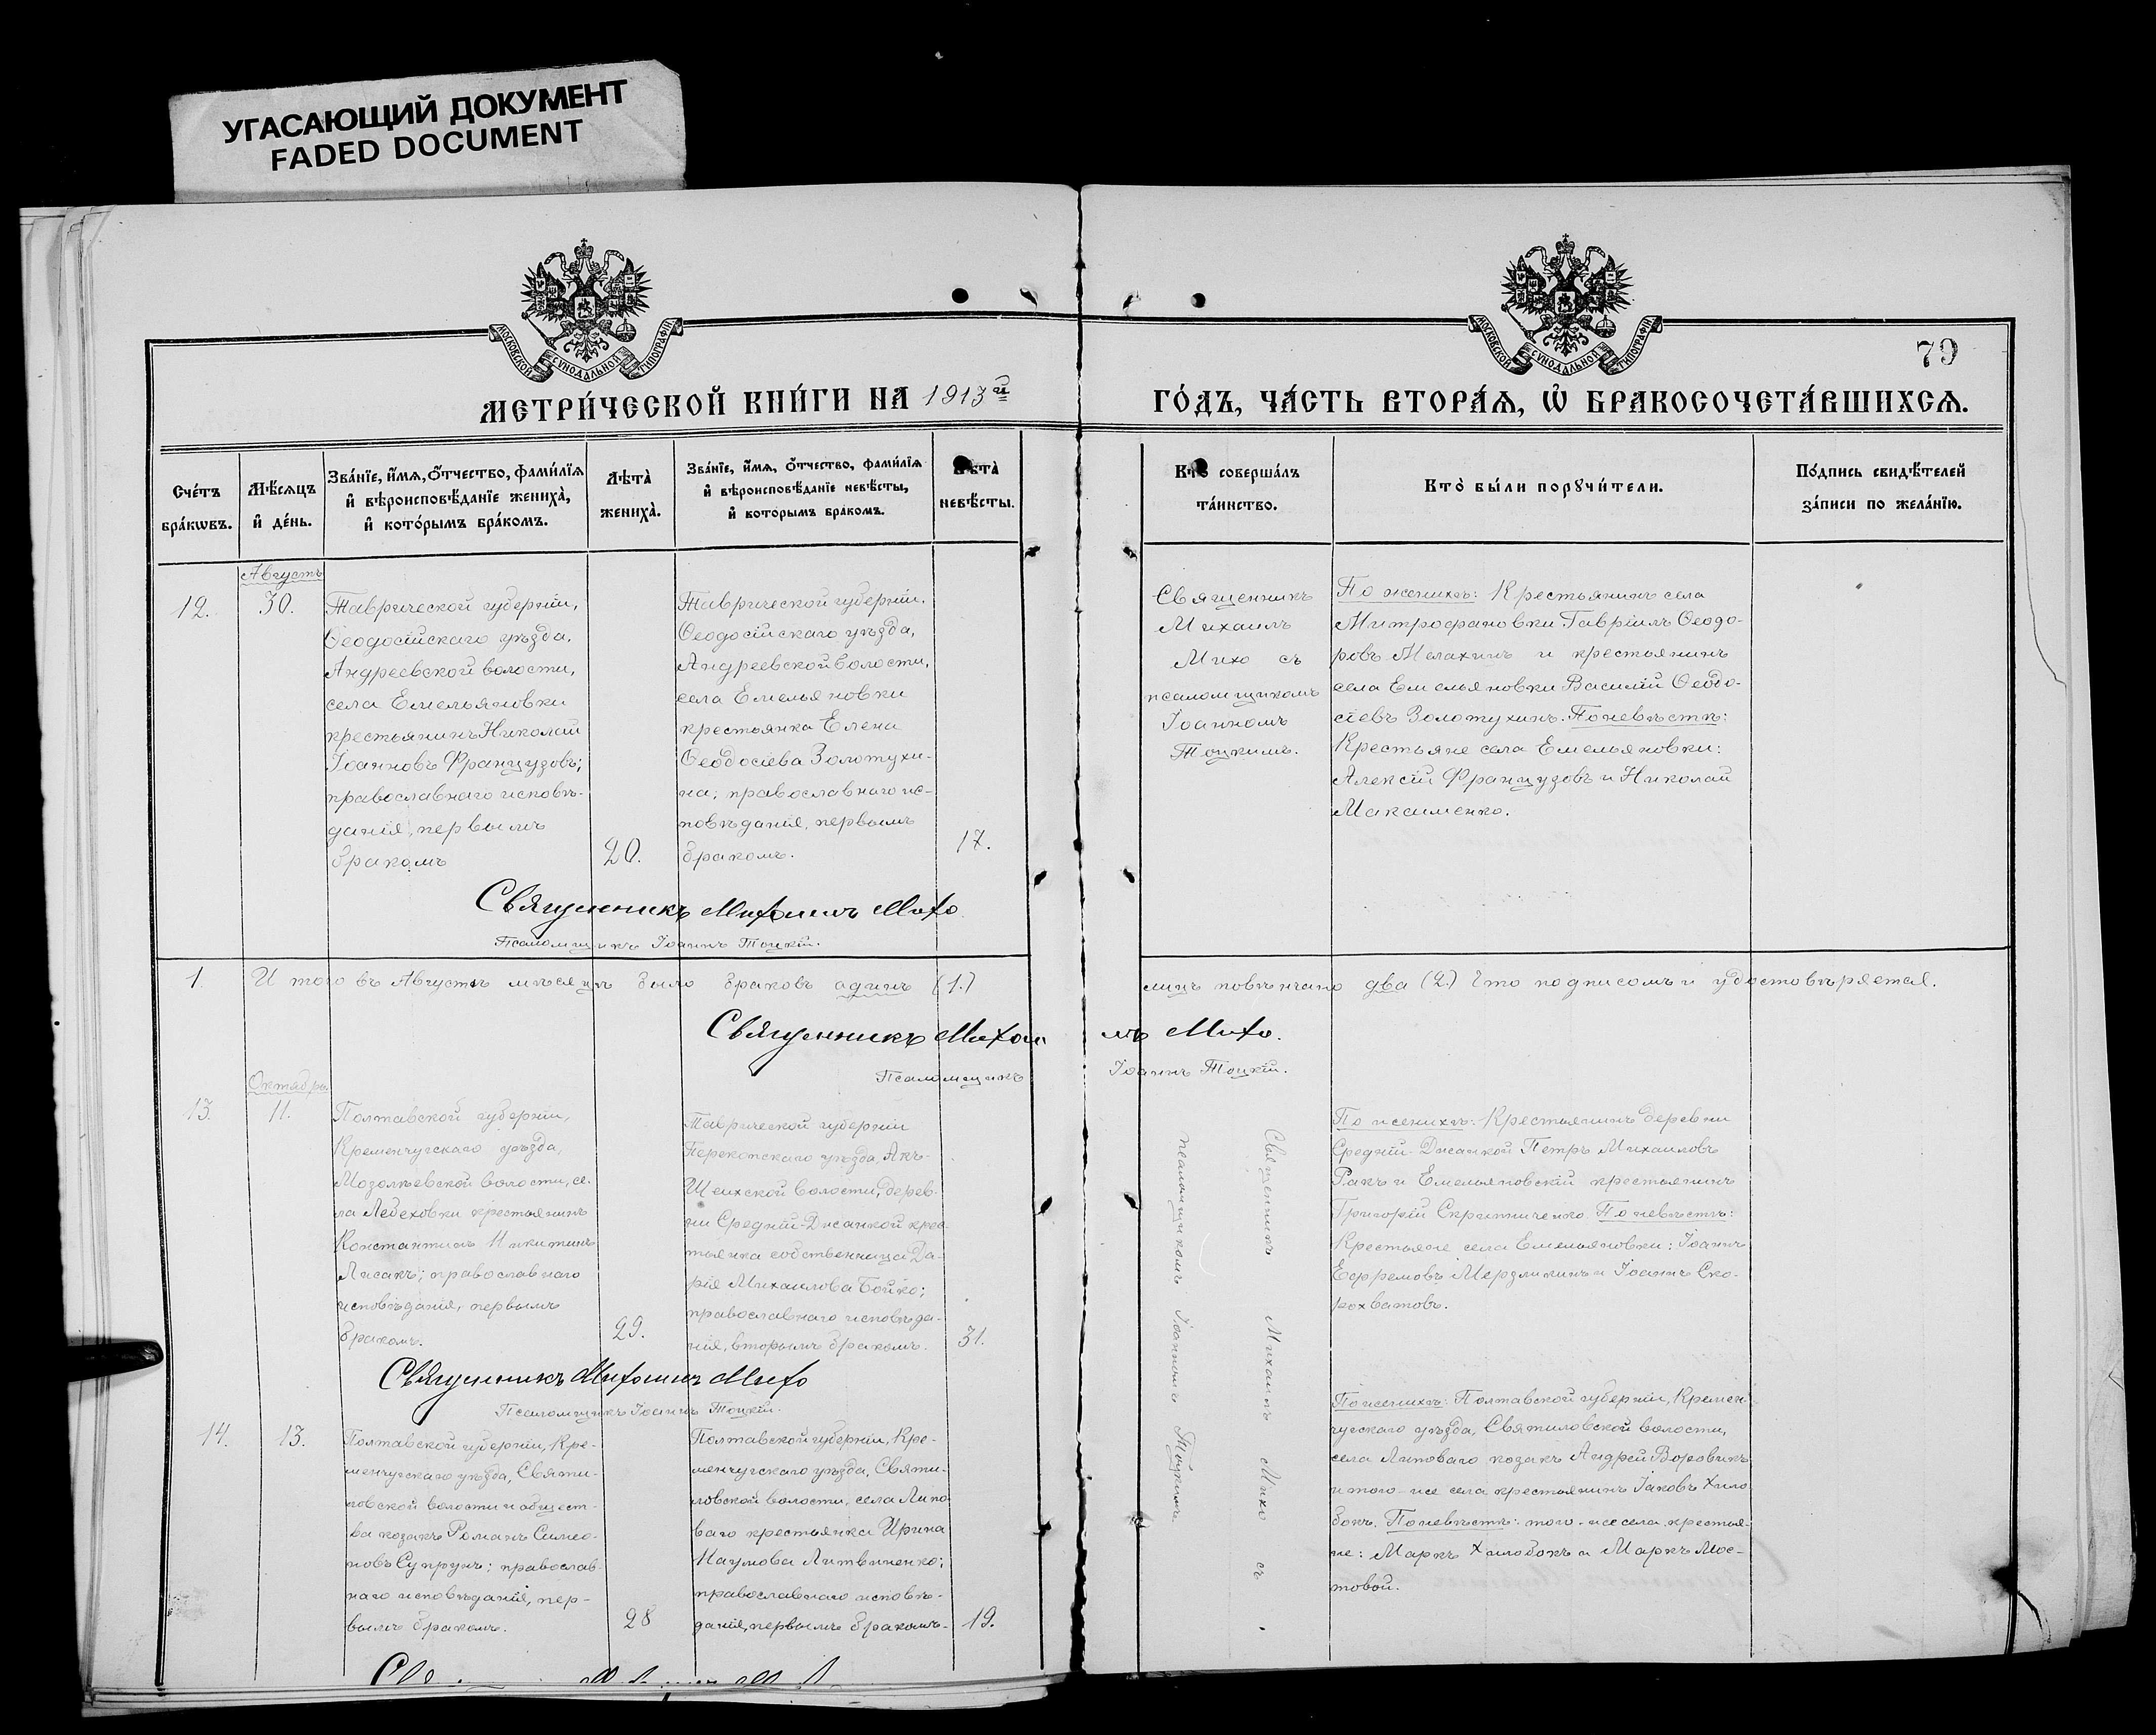 УГАСАЮЩИЙ ДОКУМЕНТ
FADED DOCUMENT
МОСКОВСКОЙ СѴНОДАЛЬНОЙ ТИПОГРАФІИ
МОСКОВСКОЙ СѴНОДАЛЬНОЙ ТИПОГРАФІИ
79
МЕТРИ́ЧЕСКОЙ КНИ́ГИ НА 1913й
ГО́ДЪ, ЧА́СТЬ ВТОРА́Ѧ, Ѡ҆ БРАКОСОЧЕТА́ВШИХСѦ.
Сче́тъ
бра́кѡвъ.
Мѣ́сѧцъ
и҆ де́нь.
Зва́нїе, и҆́мѧ, ѻ҆́тчество, фами́лїѧ
и҆ вѣроисповѣ́данїе жениха̀,
и҆ кото́рымъ бра́комъ.
Лѣта̀
жениха̀.
Зва́нїе, и҆́мѧ, ѻ҆́тчество, фами́лїѧ
и҆ вѣроисповѣ́данїе невѣ́сты,
и҆ кото́рымъ бра́комъ.
Лѣта̀
невѣ́сты.
Кто̀ соверша́лъ
та́инство.
Кто̀ бы́ли порꙋчи́тели.
По́дпись свидѣ́телей
за́писи по жела́нїю.
Августъ
12.
30.
Таврической губерніи,
Ѳеодосійскаго уѣзда,
Андреевской волости,
села Емельяновки
крестьянинъ Николай
Іоанновъ Французовъ;
православнаго исповѣ-
данія, первымъ
бракомъ
20.
Таврической губерніи,
Ѳеодосійскаго уѣзда,
Андреевской волости,
села Емельяновки
крестьянка Елена
Ѳеодосіева Золотухи-
на; православнаго ис-
повѣданія, первымъ
бракомъ.
17.
Священникъ
Михаилъ
Михо съ
псаломщикомъ
Іоанномъ
Тоцкимъ.
По женихѣ: Крестьянинъ села
Митрофановки Гавріилъ Ѳеодо-
ровъ Малахинъ и крестьянинъ
села Емельяновки Василій Ѳеодо-
сіевъ Золотухинъ. По невѣстѣ:
Крестьяне села Емельяновки:
Алексій Французовъ и Николай
Максименко.
Священникъ Михаилъ Михо
Псаломщикъ Іоаннъ Тоцкій.
1. Итого въ Августѣ мѣсяцѣ было браковъ адинъ (1.) лицъ повѣнчано два (2.) Что подписомъ и удостовѣряется.
Священникъ Михаилъ Михо.
Псаломщикъ Іоаннъ Тоцкій.
Октябрь
13.
11.
Полтавской губерніи,
Кременчугскаго уѣзда,
Мозолѣевской волости, се-
ла Лебеховки крестьянинъ
Константинъ Никитинъ
Лисакъ; православнаго
исповѣданія, первымъ
бракомъ.
29.
Таврической губерніи
Перекопскаго уѣзда, Акъ-
Шеихской волости, дерев-
ни Средній-Джанкой крес-
тьянка собственница Да-
рія Михаилова Бойко;
православнаго исповѣда-
нія, вторымъ бракомъ.
31.
Священникъ Михаилъ Михо съ
псаломщикомъ Іоанномъ Тоцкимъ.
По женихѣ: Крестьянинъ деревни
Средній-Джанкой Петръ Михаиловъ
Ракъ и Емельяновскій крестьянинъ
Григорій Скрипниченко. По невѣстѣ:
Крестьяне села Емельяновки: Іоаннъ
Ефремовъ Мерзликинъ и Іоаннъ Ско-
рохватовъ.
Священникъ Михаилъ Михо
Псаломщикъ Іоаннъ Тоцкій.
14.
13.
Полтавской губерніи, Кре-
менчугскаго уѣзда, Святи-
ловской волости и общест-
ва козакъ Романъ Симео-
новъ Супрунъ; православ-
наго исповѣданія, пер-
вымъ бракомъ.
28
Полтавской губерніи, Кре-
менчугскаго уѣзда, Святи-
ловской волости, села Липо-
ваго крестьянка Ирина
Наумова Литвиненко;
православнаго исповѣ-
данія, первымъ бракомъ.
19.
По женихѣ: Полтавской губерніи, Кремен-
чугскаго уѣзда, Святиловской волости,
села Липоваго козакъ Андрей Воровикъ
и того-же села крестьянинъ Іаковъ Хило-
бокъ. По невѣстѣ: того-же села крестья-
не: Маркъ Хилобокъ и Маркъ Мос-
товой.